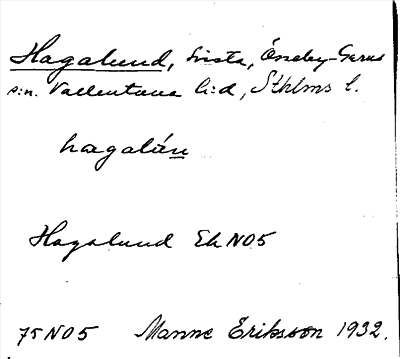 Hagalund, Svista, Össeby-Garns
s:n. Vallentuna h:d, Sthlms l.
hagalán
Hagalund Ek N05
75 N05 Manne Eriksson 1932.